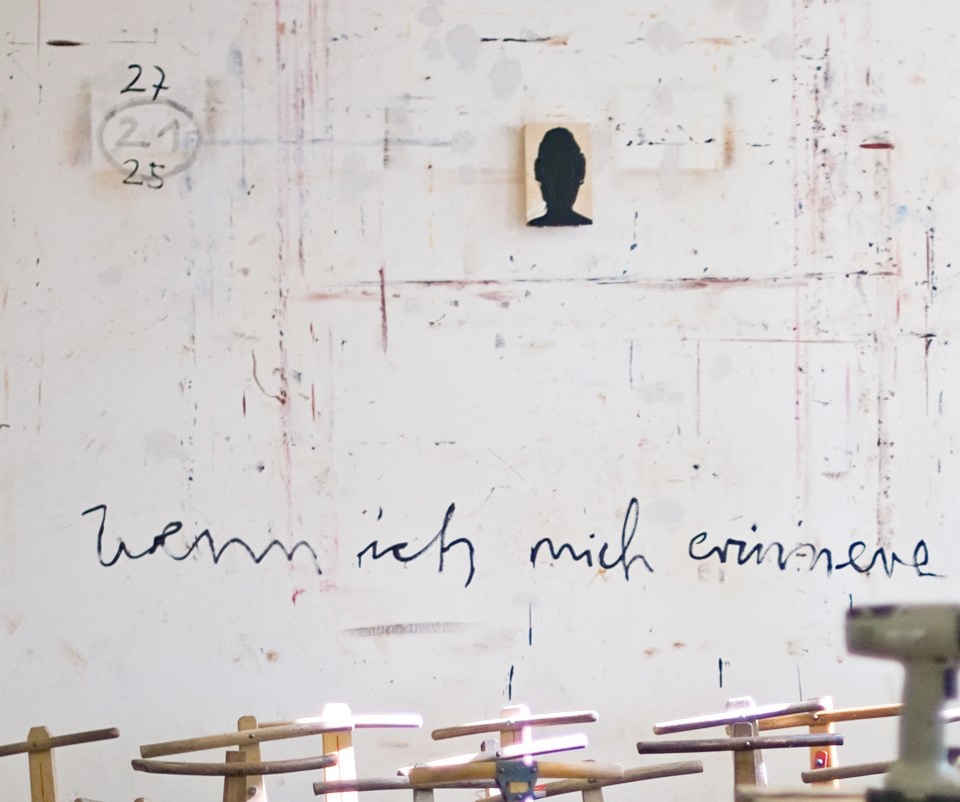 27
21
25
wenn ich mich erinnere